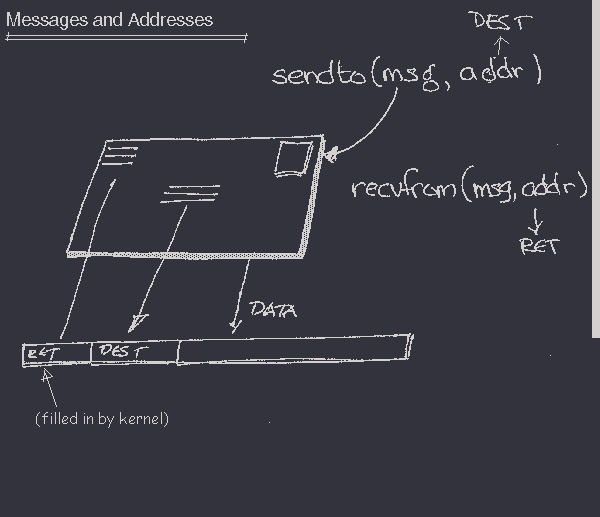 Messages and Addresses
DEST
sendto(msg, addr)
recvfrom(msg, addr)
RET
DATA
RET DEST
(filled in by kernel)